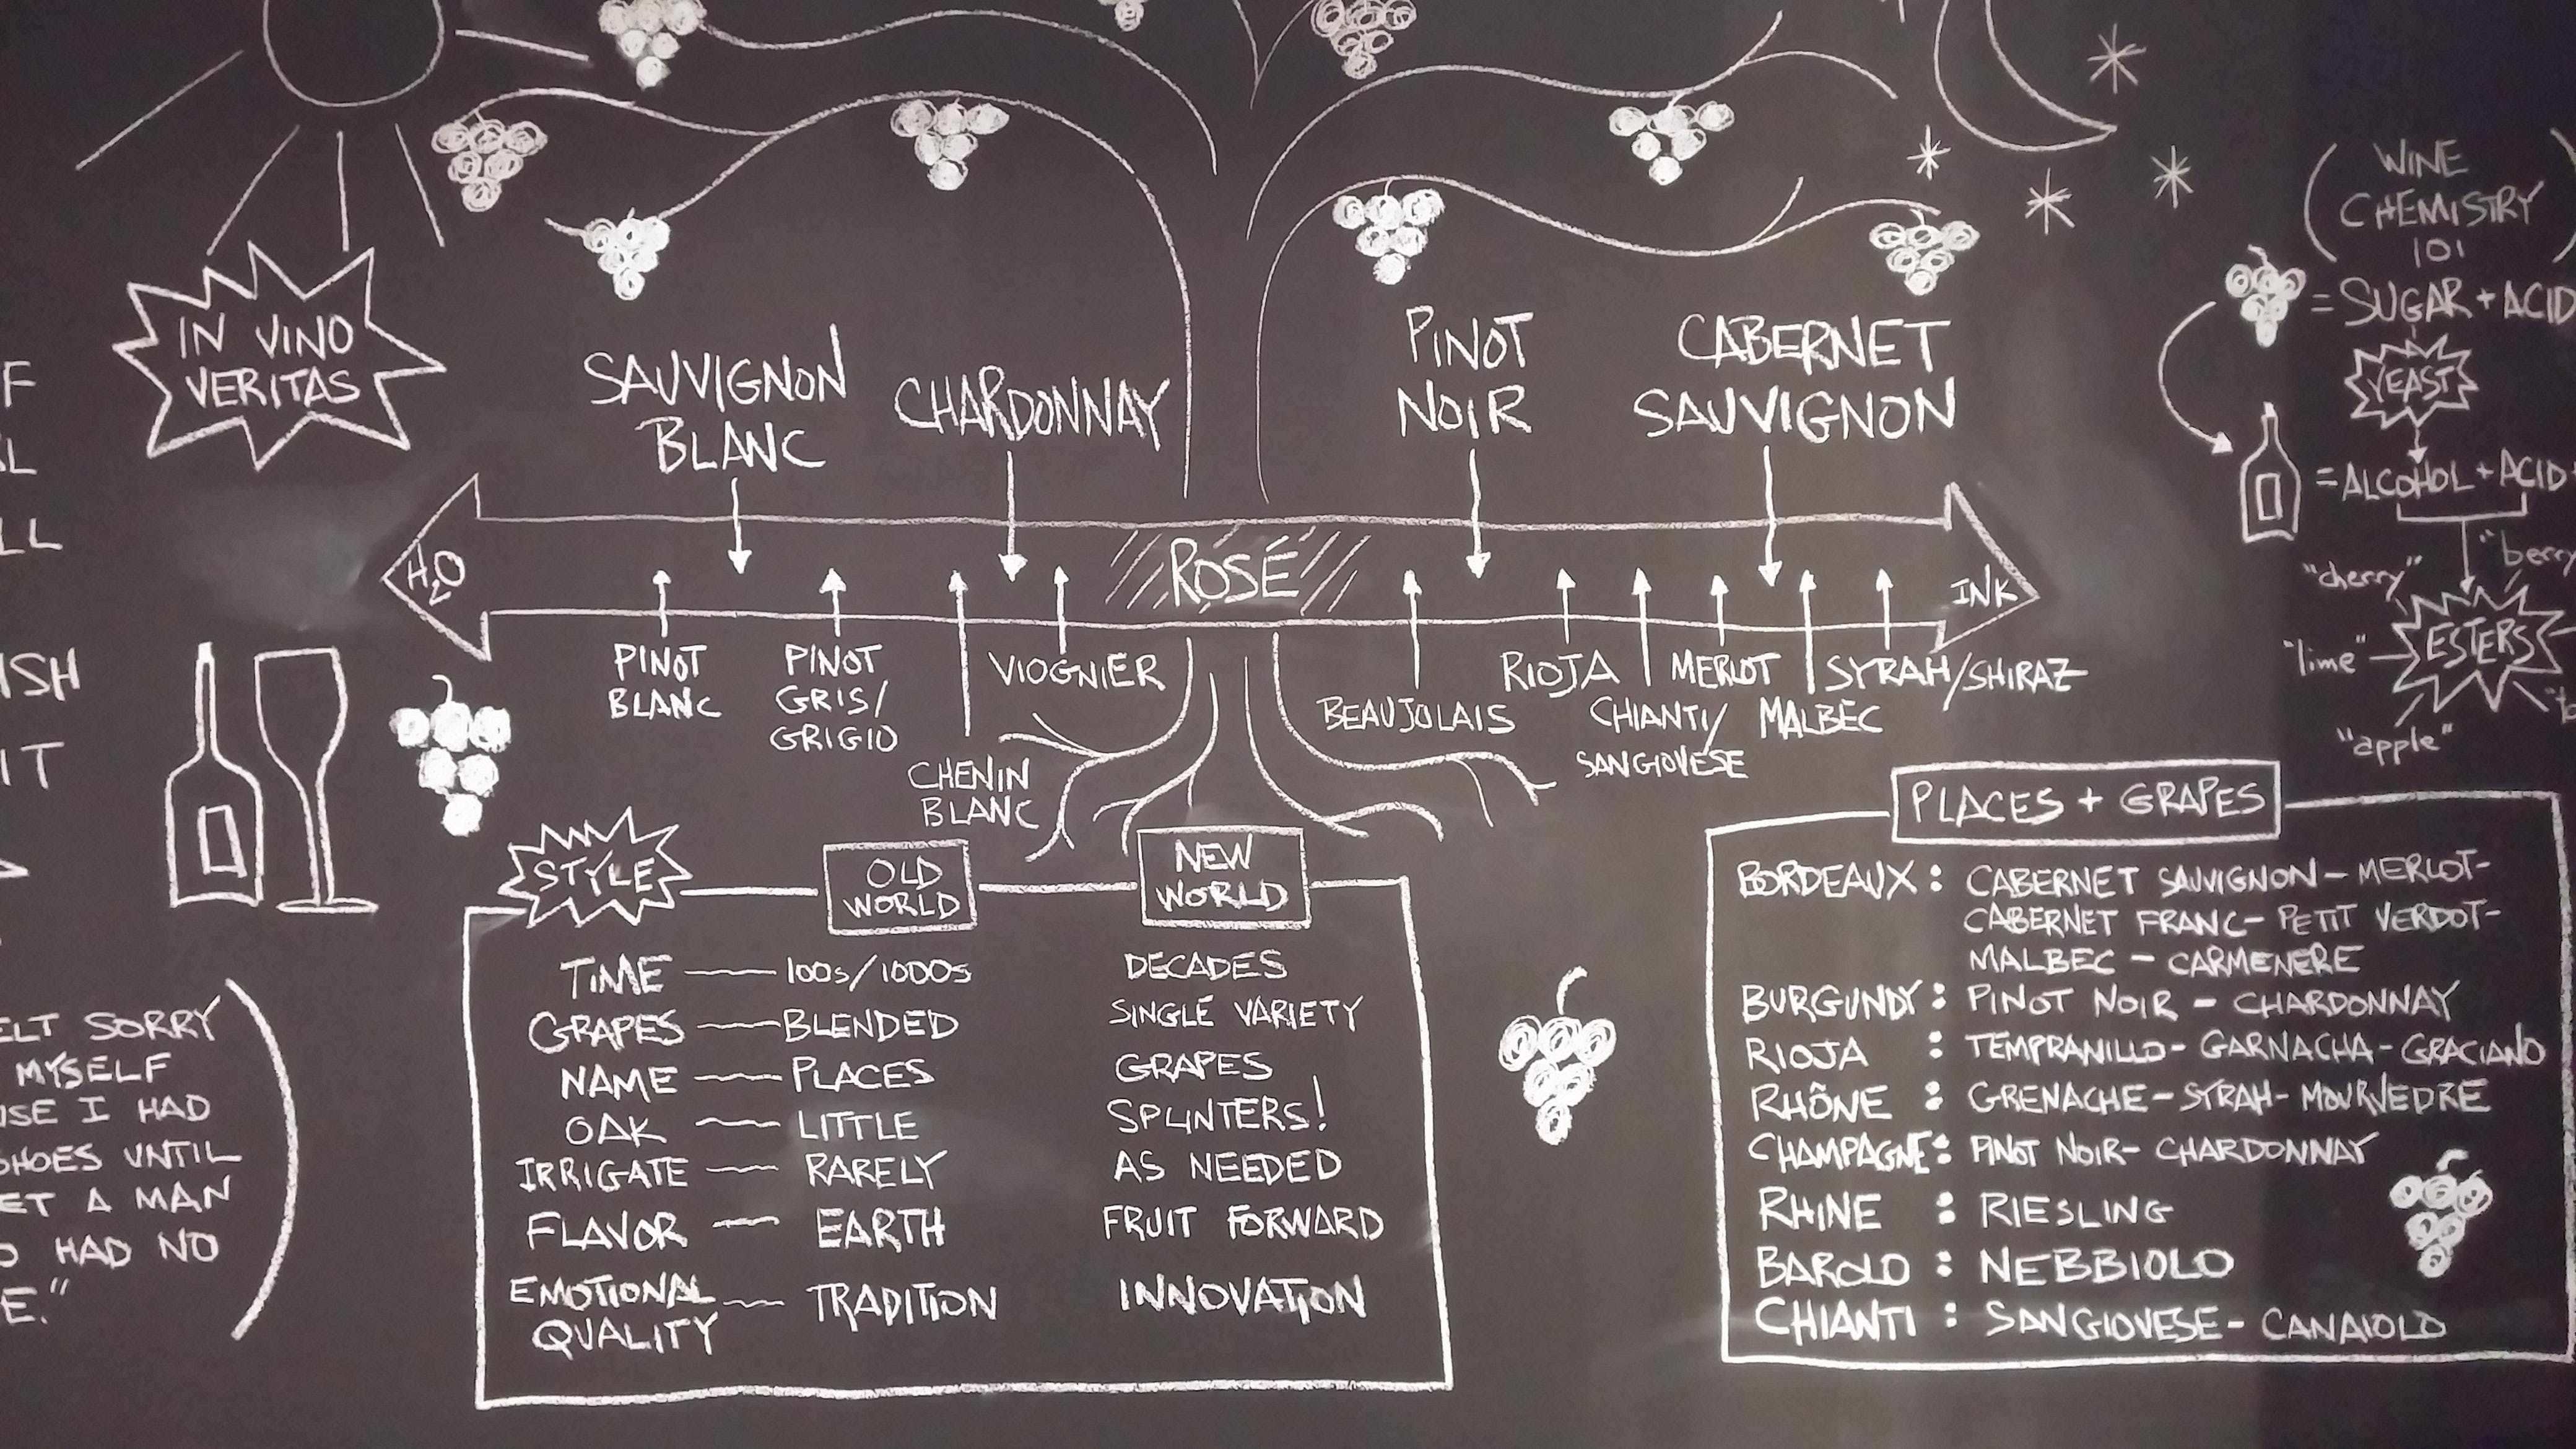 IN VINO
VERITAS
SAUVIGNON
BLANC
CHARDONNAY
PINOT
NOIR
CABERNET
SAUVIGNON
H2O
ROSÉ
INK
PINOT
BLANC
PINOT
GRIS/
GRIGIO
CHENIN
BLANC
VIOGNIER
BEAUJOLAIS
RIOJA
CHIANTI/
SANGIOVESE
MERLOT
MALBEC
SYRAH/SHIRAZ
(WINE
CHEMISTRY
101)
= SUGAR + ACID
YEAST
= ALCOHOL + ACID
"cherry"
"berry
"lime"
ESTERS
"apple"
STYLE
OLD
WORLD
NEW
WORLD
TIME — 100s/1000s DECADES
GRAPES — BLENDED SINGLE VARIETY
NAME — PLACES GRAPES
OAK — LITTLE SPLINTERS!
IRRIGATE — RARELY AS NEEDED
FLAVOR — EARTH FRUIT FORWARD
EMOTIONAL
QUALITY — TRADITION INNOVATION
PLACES + GRAPES
BORDEAUX : CABERNET SAUVIGNON - MERLOT -
CABERNET FRANC - PETIT VERDOT -
MALBEC - CARMENERE
BURGUNDY : PINOT NOIR - CHARDONNAY
RIOJA : TEMPRANILLO - GARNACHA - GRACIANO
RHÔNE : GRENACHE - SYRAH - MOURVEDRE
CHAMPAGNE : PINOT NOIR - CHARDONNAY
RHINE : RIESLING
BAROLO : NEBBIOLO
CHIANTI : SANGIOVESE - CANAIOLO
F
L
LL
ISH
IT
ELT SORRY
MYSELF
USE I HAD
SHOES UNTIL
ET A MAN
O HAD NO
E."